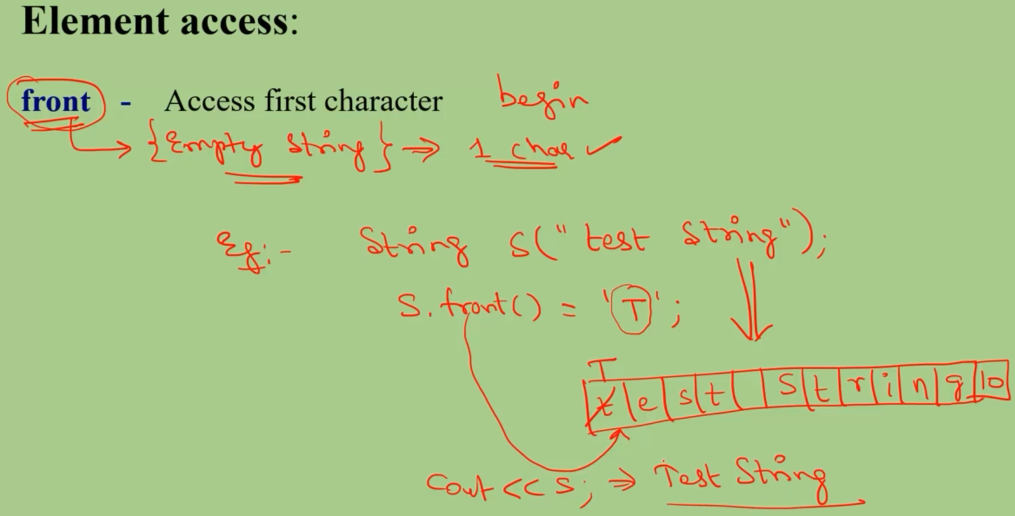 Element access:
front - Access first character begin
{Empty string} ⇒ 1 char ✓
Eg:- String s("test string");
s.front() = 'T';
T
t e s t   s t r i n g \0
cout << s; ⇒ Test String